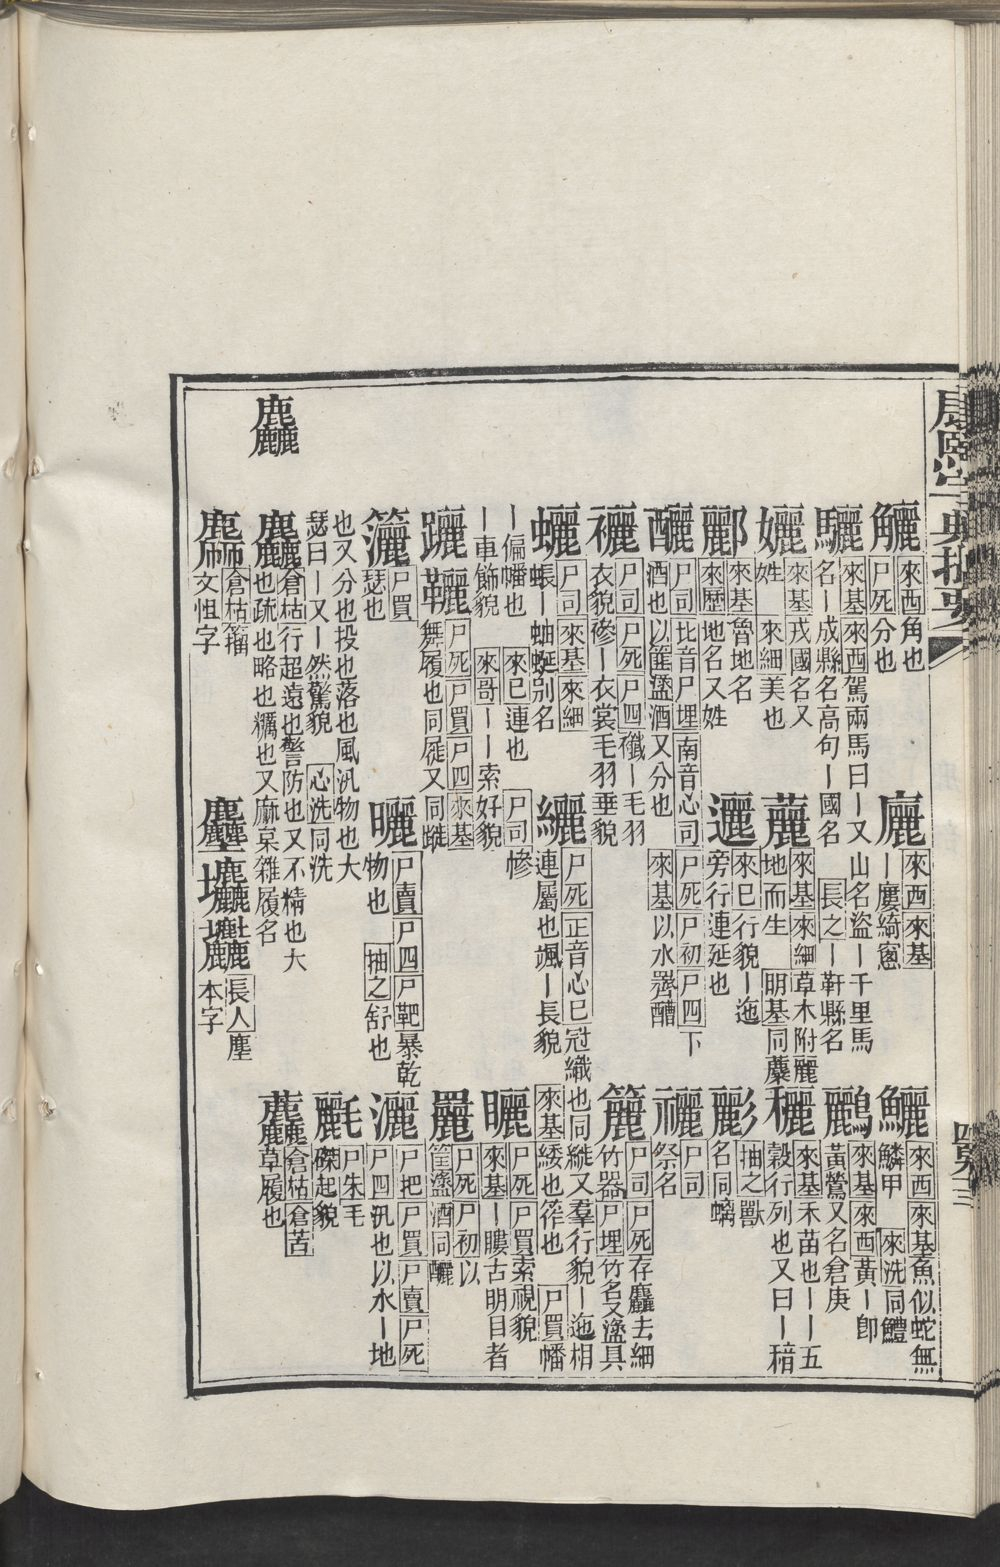 康熙字典撮要
麤
䚕 來西角也
尸死分也
廲 來西來基
ー廔綺窻
鱺 來西來基魚似蛇無
鱗甲 來洗同鱧
驪 來基來西駕兩馬曰ー又山名盜ー千里馬
名ー成縣名高句ー國名 長之ー靬縣名
鸝 來基來西黃ー卽
黃鶯又名倉庚
孋 來基戎國名又
姓 來細美也
䕻 來基來細草木附麗
地而生 明基同蘪
穲 來基禾苗也ーー五
穀行列也又曰ー穡
酈 來基魯地名
來歷地名又姓
邐 來巳行貌ー迤
旁行連延也
彲 抽之獸
名同螭
釃 尸司比音尸埋南音心司尸死尸初尸四下
酒也以筐盪酒又分也 來基以水虀醩
尸司
祭名
襹 尸司尸死尸四襳ー毛羽
衣貌襂ー衣裳毛羽垂貌
籭 尸司尸死存麤去細
竹器尸埋竹名又盪具
尸司來基來細
ー蚰蜒别名
纚 尸死正音心巳冠織也同縰又羣行貌ー迤相
連屬也颯ー長貌 來基緌也筰也 尸買幡
ー偏幡也 來巳連也 尸司幓
ー車飾貌 來哥ーー索好貌
矖 尸死尸買索視貌
來基ー瞜古明目者
躧 尸死尸買尸四來基
舞履也同屣又同蹝
尸死尸初以
筐盪酒同釃
尸買
瑟也
曬 尸賣尸四尸靶暴乾
物也 抽之舒也
灑 尸把尸買尸賣尸死
尸四汛也以水ー地
也又分也投也落也風汎物也大
瑟曰ー又ー然驚貌 心洗同洗
尸朱毛
磔起貌
麤 倉枯行超遠也警防也又不精也大
也疏也略也糲也又麻枲雜履名
倉枯倉苦
草履也
倉枯籀
文怚字
長人塵
本字